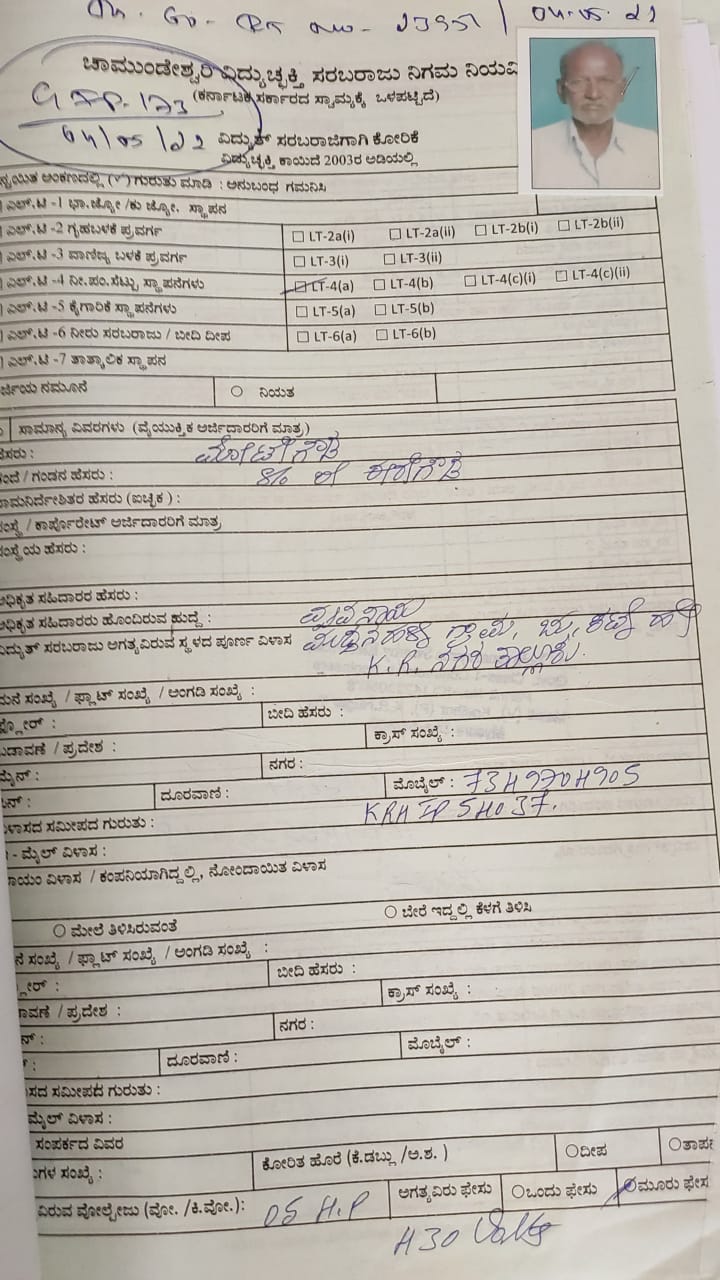 04.05.22
ಚಾಮುಂಡೇಶ್ವರಿ ವಿದ್ಯುಚ್ಛಕ್ತಿ ಸರಬರಾಜು ನಿಗಮ ನಿಯಮಿ
(ಕರ್ನಾಟಕ ಸರ್ಕಾರದ ಸ್ವಾಮ್ಯಕ್ಕೆ ಒಳಪಟ್ಟಿದೆ)
04/05/22 ವಿದ್ಯುತ್ ಸರಬರಾಜಿಗಾಗಿ ಕೋರಿಕೆ
ವಿದ್ಯುಚ್ಛಕ್ತಿ ಕಾಯಿದೆ 2003ರ ಅಡಿಯಲ್ಲಿ
ನ್ವಯಿತ ಅಂಕಣದಲ್ಲಿ (✓) ಗುರುತು ಮಾಡಿ : ಅನುಬಂಧ ಗಮನಿಸಿ
ಎಲ್.ಟಿ -1 ಭಾ.ಜ್ಯೋ /ಕು ಜ್ಯೋ. ಸ್ಥಾಪನ
ಎಲ್.ಟಿ -2 ಗೃಹಬಳಕೆ ಪ್ರವರ್ಗ LT-2a(i) LT-2a(ii) LT-2b(i) LT-2b(ii)
ಎಲ್.ಟಿ -3 ವಾಣಿಜ್ಯ ಬಳಕೆ ಪ್ರವರ್ಗ LT-3(i) LT-3(ii)
ಎಲ್.ಟಿ -4 ನೀ.ಪಂ.ಸೆಟ್ಟು ಸ್ಥಾಪನೆಗಳು LT-4(a) LT-4(b) LT-4(c)(i) LT-4(c)(ii)
ಎಲ್.ಟಿ -5 ಕೈಗಾರಿಕೆ ಸ್ಥಾಪನೆಗಳು LT-5(a) LT-5(b)
ಎಲ್.ಟಿ -6 ನೀರು ಸರಬರಾಜು / ಬೀದಿ ದೀಪ LT-6(a) LT-6(b)
ಎಲ್.ಟಿ -7 ತಾತ್ಕಾಲಿಕ ಸ್ಥಾಪನ
ರ್ಜಿಯ ನಮೂನೆ ನಿಯತ
ಸಾಮಾನ್ಯ ವಿವರಗಳು (ವೈಯುಕ್ತಿಕ ಅರ್ಜಿದಾರರಿಗೆ ಮಾತ್ರ)
ಹೆಸರು :
ಂದೆ / ಗಂಡನ ಹೆಸರು :
ಾಮನಿರ್ದೇಶಿತರ ಹೆಸರು (ಐಚ್ಛಿಕ) :
ಸಂಸ್ಥೆ / ಕಾರ್ಪೊರೇಟ್ ಅರ್ಜಿದಾರರಿಗೆ ಮಾತ್ರ
ಸಂಸ್ಥೆಯ ಹೆಸರು :
ಅಧಿಕೃತ ಸಹಿದಾರರ ಹೆಸರು :
ಅಧಿಕೃತ ಸಹಿದಾರರು ಹೊಂದಿರುವ ಹುದ್ದೆ :
ವಿದ್ಯುತ್ ಸರಬರಾಜು ಅಗತ್ಯವಿರುವ ಸ್ಥಳದ ಪೂರ್ಣ ವಿಳಾಸ
K.R. ನಗರ ತಾಲ್ಲೂಕು.
ಮನೆ ಸಂಖ್ಯೆ / ಫ್ಲಾಟ್ ಸಂಖ್ಯೆ / ಅಂಗಡಿ ಸಂಖ್ಯೆ :
ಫ್ಲೋರ್ : ಬೀದಿ ಹೆಸರು :
ಬಡಾವಣೆ / ಪ್ರದೇಶ : ಕ್ರಾಸ್ ಸಂಖ್ಯೆ :
ಮೈನ್ : ನಗರ :
ಪಿನ್ : ದೂರವಾಣಿ : ಮೊಬೈಲ್ : 7349704905
ವಿಳಾಸದ ಸಮೀಪದ ಗುರುತು : KRHIP54037.
- ಮೈಲ್ ವಿಳಾಸ :
ಾಯಂ ವಿಳಾಸ / ಕಂಪನಿಯಾಗಿದ್ದಲ್ಲಿ, ನೋಂದಾಯಿತ ವಿಳಾಸ
ಮೇಲೆ ತಿಳಿಸಿರುವಂತೆ ಬೇರೆ ಇದ್ದಲ್ಲಿ ಕೆಳಗೆ ತಿಳಿಸಿ
ನೆ ಸಂಖ್ಯೆ / ಫ್ಲಾಟ್ ಸಂಖ್ಯೆ / ಅಂಗಡಿ ಸಂಖ್ಯೆ :
್ಲೋರ್ : ಬೀದಿ ಹೆಸರು :
ಾವಣೆ / ಪ್ರದೇಶ : ಕ್ರಾಸ್ ಸಂಖ್ಯೆ :
ನ್ : ನಗರ :
ದೂರವಾಣಿ : ಮೊಬೈಲ್ :
ಸದ ಸಮೀಪದ ಗುರುತು :
ಮೈಲ್ ವಿಳಾಸ :
ಸಂಪರ್ಕದ ವಿವರ
ಗಳ ಸಂಖ್ಯೆ : ಕೋರಿತ ಹೊರೆ (ಕೆ.ಡಬ್ಲು /ಅ.ಶ. ) ದೀಪ ತಾಪ
ವಿರುವ ವೋಲ್ಟೇಜು (ವೋ. /ಕಿ.ವೋ.): 05 H.P ಅಗತ್ಯವಿರು ಫೇಸು ಒಂದು ಫೇಸು ಮೂರು ಫೇಸ
430 Volts